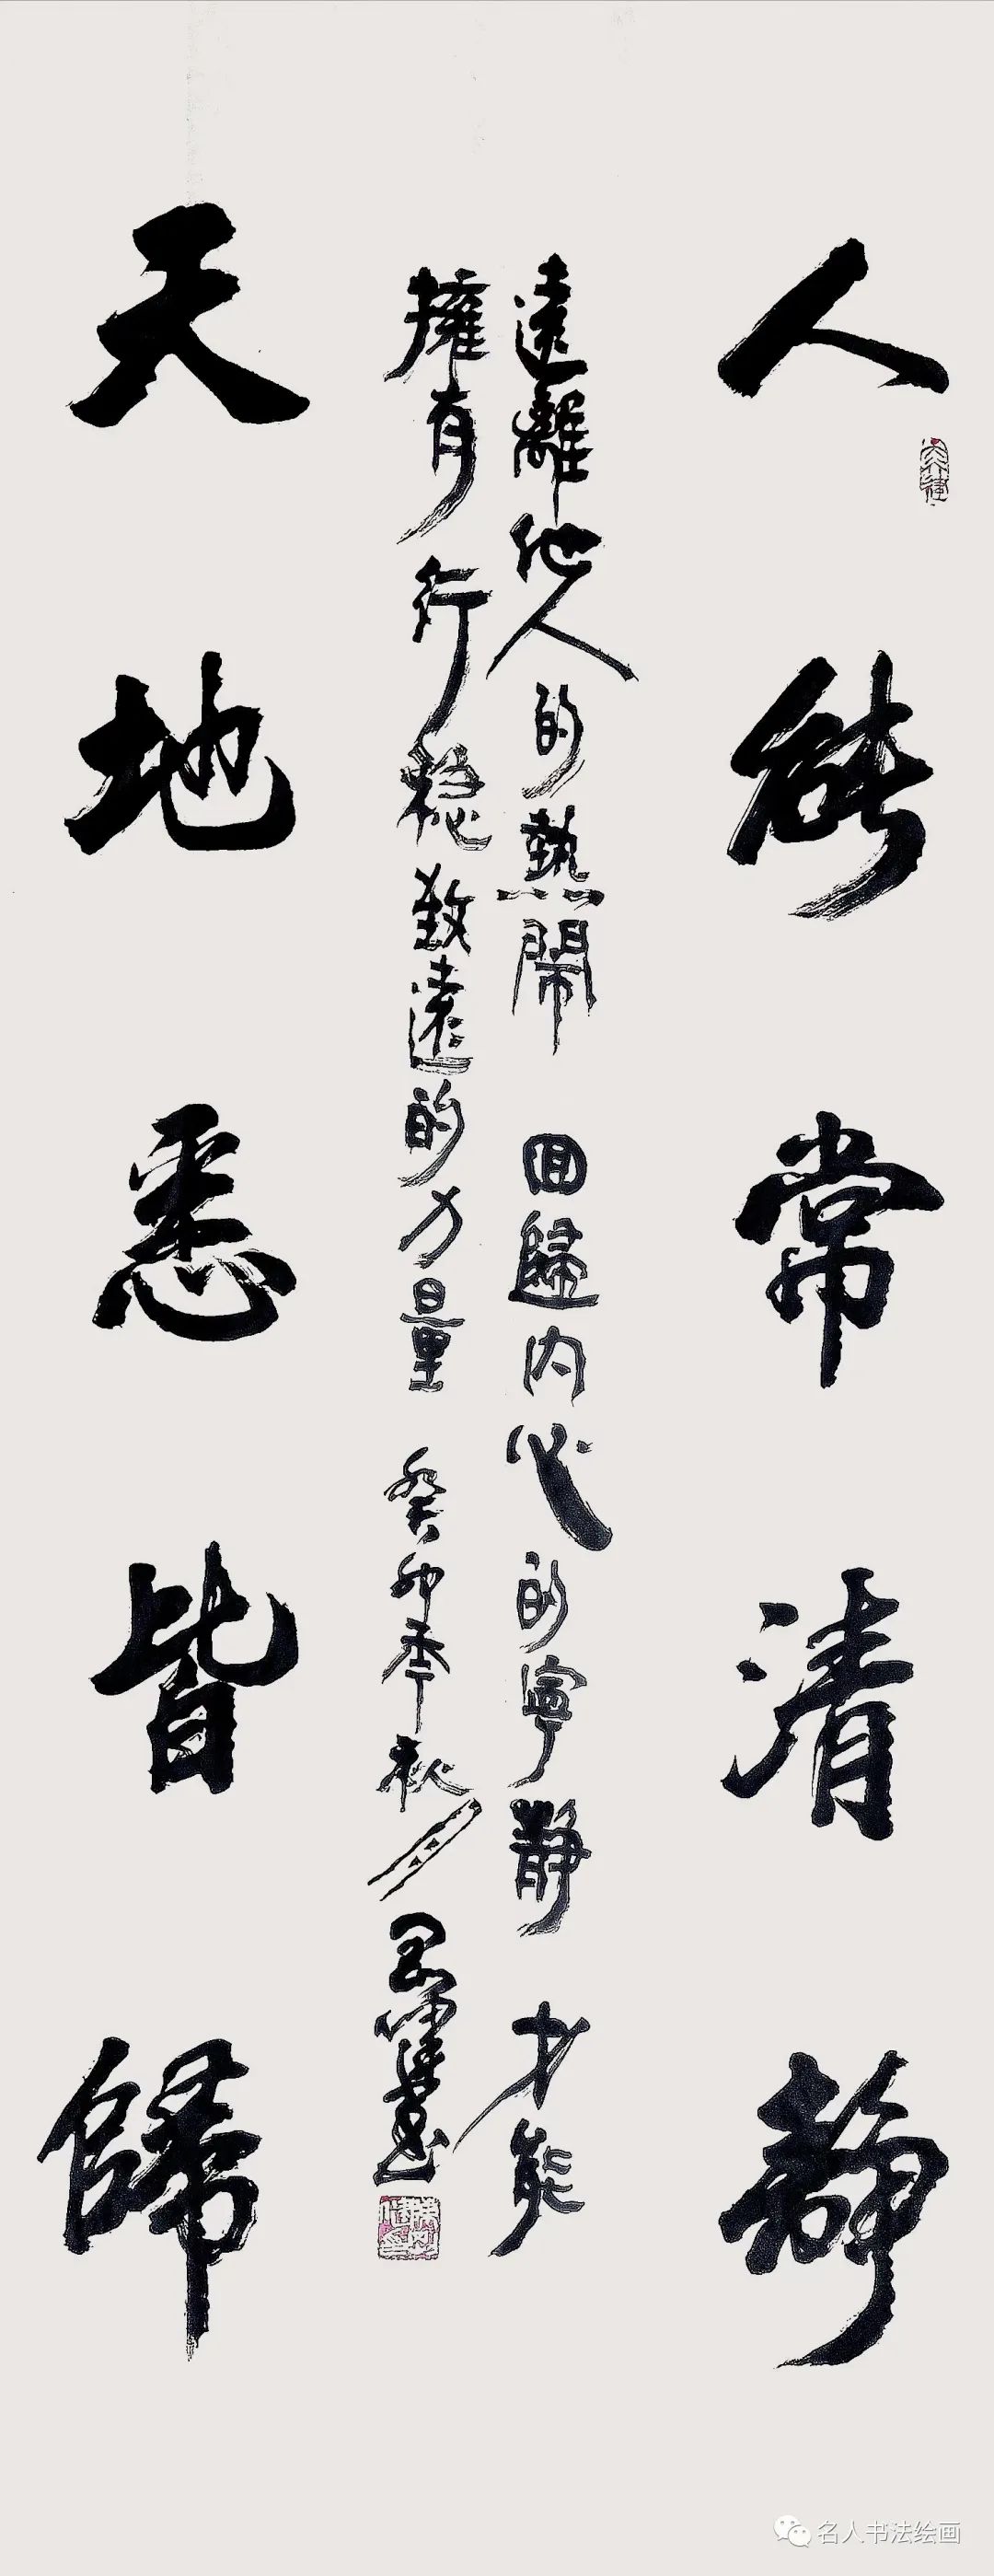 人能常清静
遠離他人的熱鬧 回歸内心的寧静 才能
擁有行穩致遠的力量 癸卯年秋月
天地悉皆歸
名人书法绘画